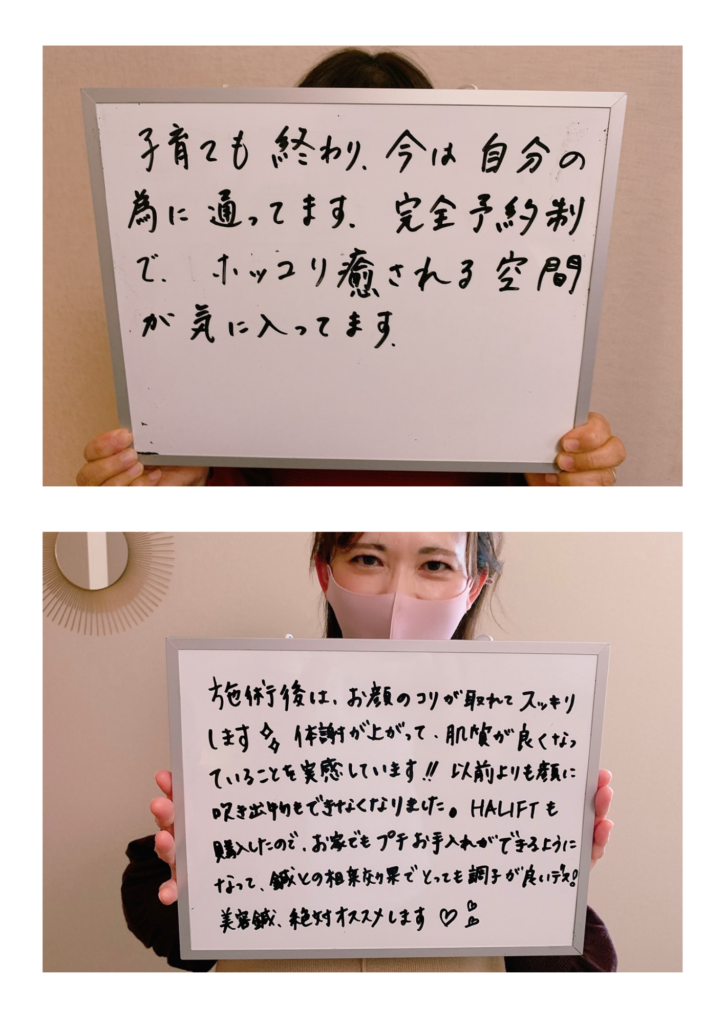 子育ても 終わり、今は 自分の
為に 通ってます。 完全予約制
で、 ホッコリ癒される 空間
が 気に入ってます。
施術後は、お顔のコリが取れて スッキリ
します 体謝が上がって、肌質が良くなっ
ていることを実感しています!! 以前よりも顔に
吹き出物もできなくなりました。HALIFTも
購入したので、お家でも プチお手入れができるように
なって、鍼との相乗効果でとっても調子が良いデス!
美容鍼、絶対オススメします♡